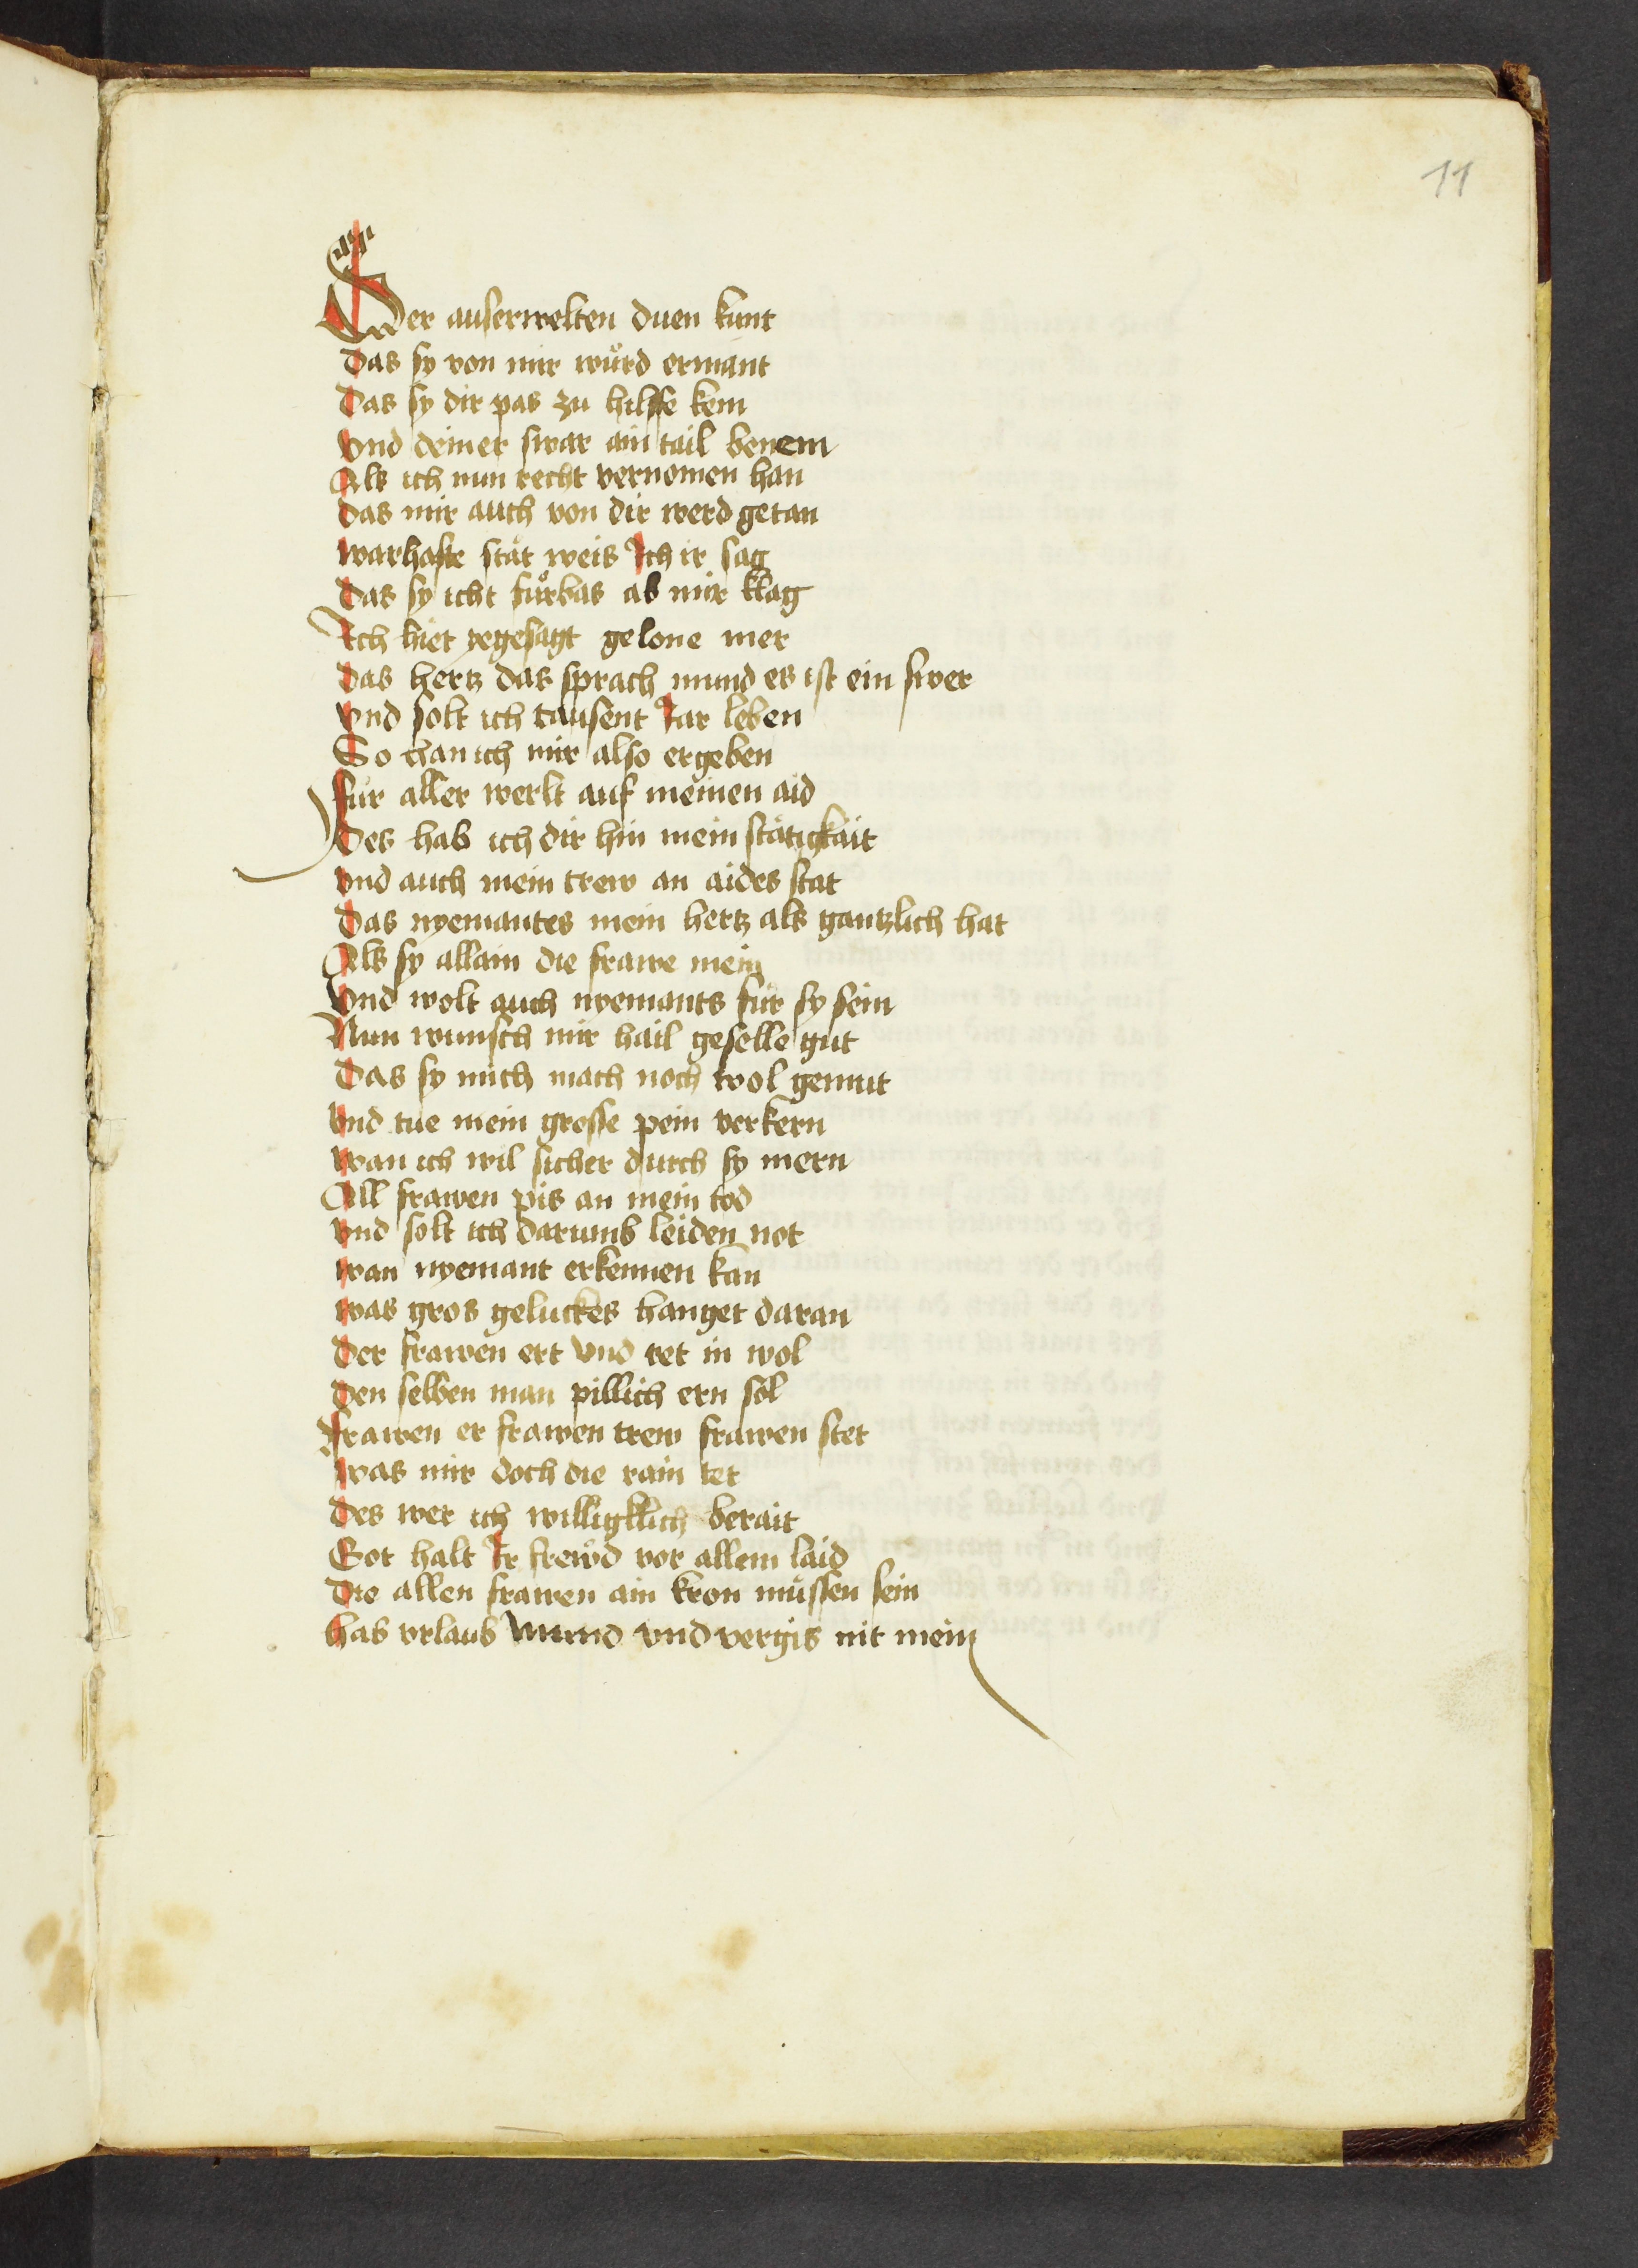 11
Der auserwelten duen kunt
das sy von mir wúrd ermant
das sy dir pas zu hilffe kem
vnd deiner swar ain tail benem
Als ich nun recht vernomen han
das mir auch von dir werd getan
warhafte stät weis Ich ir sag
das sy icht fúrbas ab mir klag
Ich hiet yegesagt gelone mer
das hertz das sprach mund es ist ein swer
vnd solt ich tausent Jar leben
So han ich mir also ergeben
fúr aller werlt auf meinen aid
des hab ich dir hin mein stätigkait
vnd auch mein trew an aides stat
das nyemantes mein hertz als gantzlich hat
Als sy allain die frawe mein
vnd wolt auch nyemants fúr sy sein
Nun wunsch mir hail geselle gut
das sy mich mach noch wol gemut
vnd tue mein grosse pein verkern
wan ich wil sicher durch sy mern
All frawen pis an mein tod
vnd solt ich darumb leiden not
wan nyemant erkennen kan
was gros geluckes hanget daran
der frawen ert vnd tet in wol
den selben man pillich ern sol
frawen er frawen trew frawen stet
was mir doch die rain tet
des wer ich willigklich berait
Got halt Ir frewd vor allem laid
die allen frawen ain kron mússen sein
hab vrlaub Mund vnd vergis nit mein